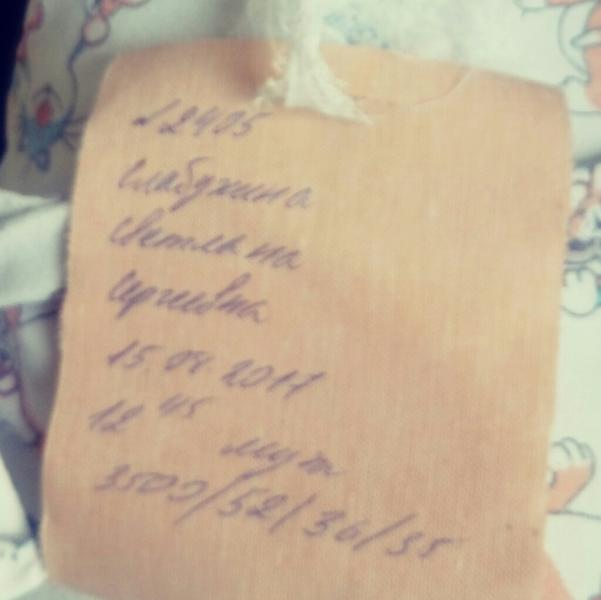 12405
Слабухина
Светлана
Сергеевна
15.04.2017
12 45 муж
3500/52/36/35